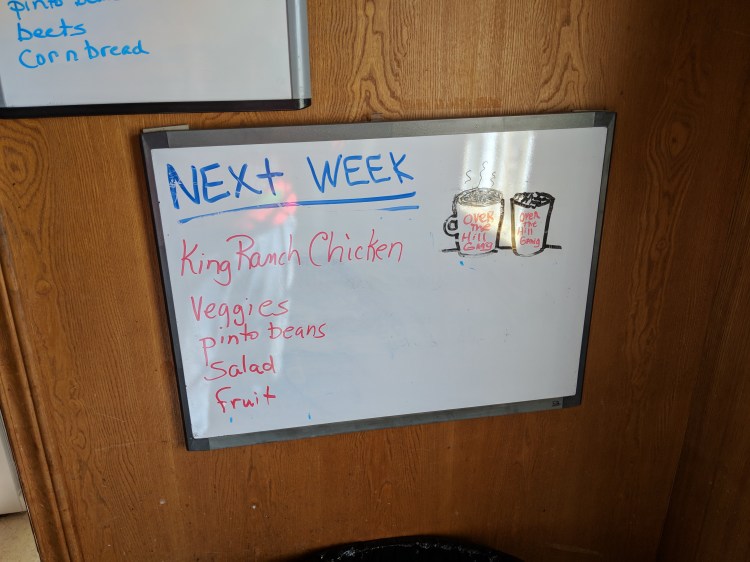 pinto
beets
Corn bread
NEXT WEEK
King Ranch Chicken
Veggies
pinto beans
Salad
fruit
OVER
THE
Hill
Gang
OVER
THE
Hill
Gang